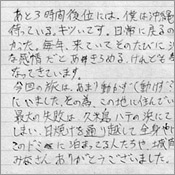 あと3時間後位には、僕は沖縄
待っている。キツいです。日常に戻るの
かった。毎年、来ていてそのたびに
な感情だとあきらめる、けんども
なってきています。
今回の旅は、あまり動かず
たいました。その為、この地に住んでい
最大の失敗は、久米島ハテの浜にて
しまい、日焼けを通り越して全身
このドミに泊まってる人たちや、
みなさんありがとうございました。